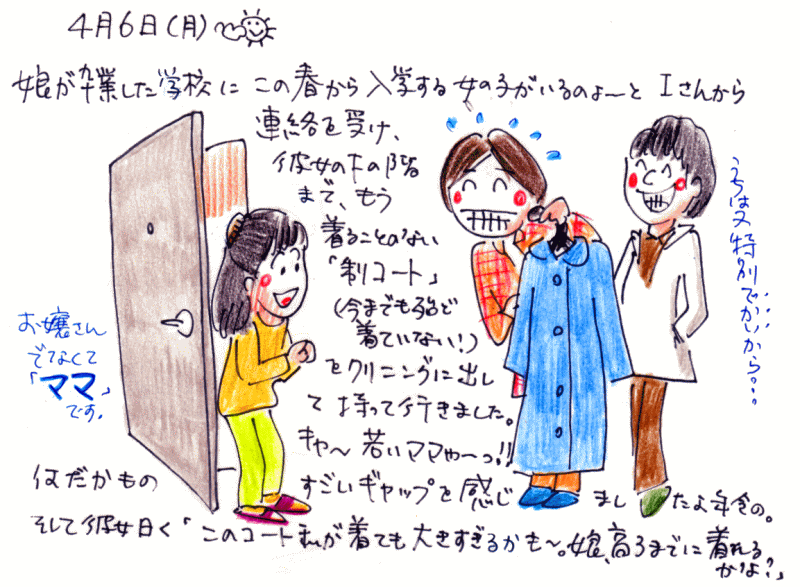 4月6日(月)
娘が卒業した学校に この春から入学する女の子がいるのよ〜と Iさんから
連絡を受け、
彼女の下の階
まで、もう
着ることのない
「制コート」
(今までも殆ど
着ていない!)
をクリーニングに出し
て 持って行きました。
キャ〜 若いママや〜っ!!
すごいギャップを感じ ましたよ年令の。
お嬢さん
でなくて
「ママ」
です。
うちは又特別でかいから???
何だかもの
そして彼女曰く「このコート私が着ても大きすぎるかも〜。娘、高3までに着れる
かな?」